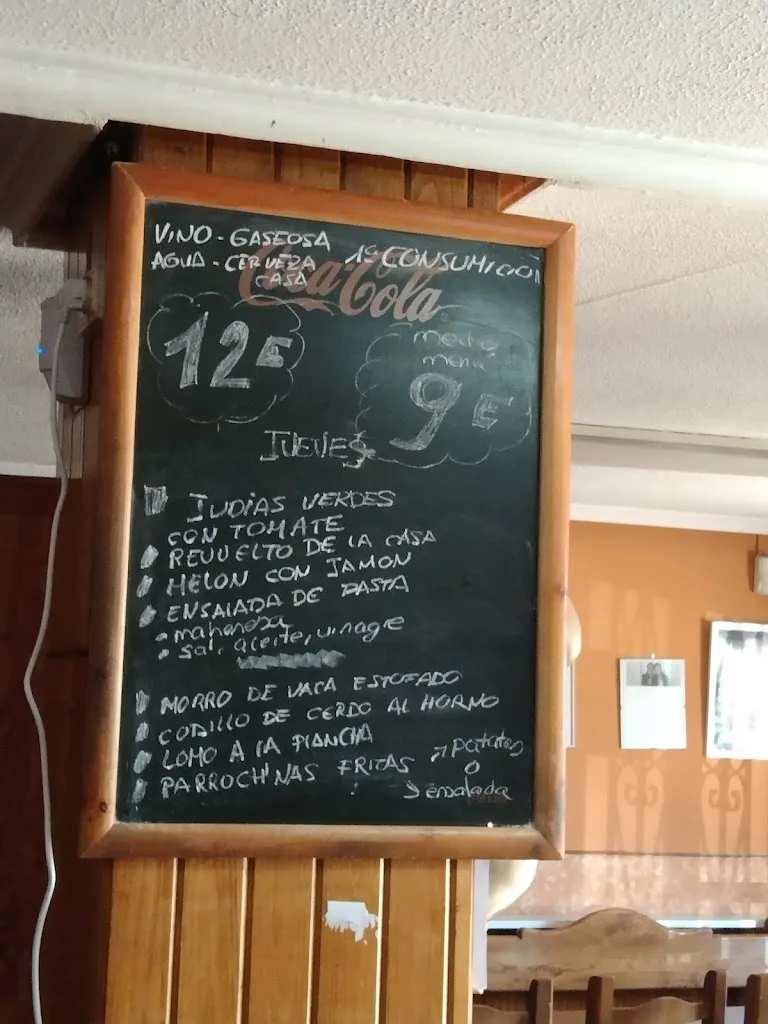 VINO - GASEOSA
AGUA - CERVEZA
CASA
1ª CONSUMICION
Coca-Cola
12€
medio
menu
9€
JUEVES
JUDIAS VERDES
CON TOMATE
REVUELTO DE LA CASA
MELON CON JAMON
ENSALADA DE PASTA
• mahonesa
• sal, aceite, vinagre
MORRO DE VACA ESTOFADO
CODILLO DE CERDO AL HORNO
LOMO A LA PLANCHA
PARROCHINAS FRITAS
→ patatas
o
→ ensalada